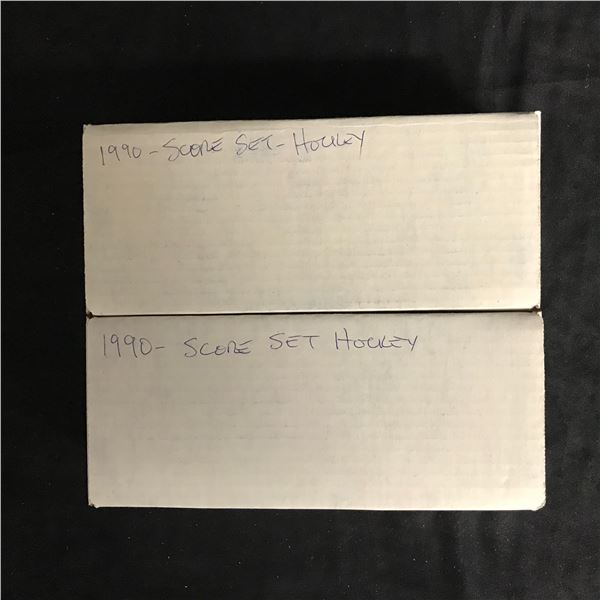 1990 - SCORE SET - HOCKEY
1990 - SCORE SET HOCKEY